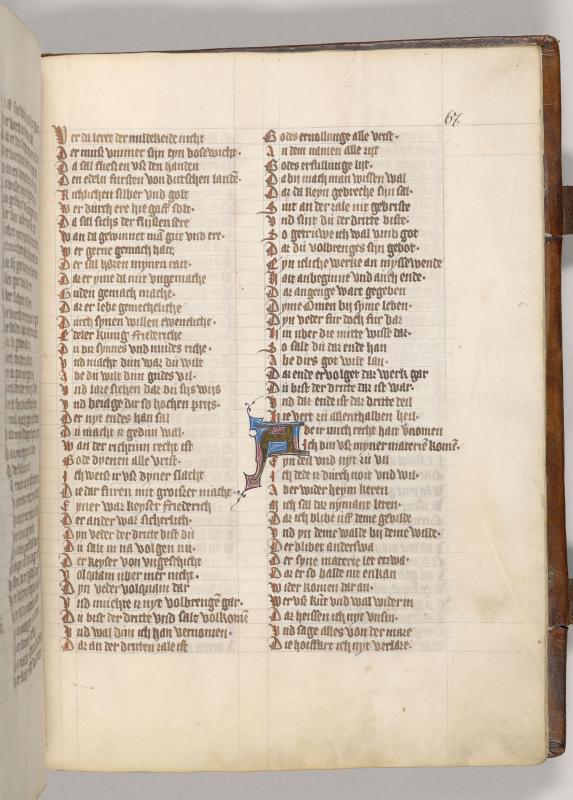 67
Wer du lerer der mildekeide nicht
Der muß ymmer sijn eyn bosewicht·
Da sal fließen vß den handen
Den edeln fursten von dutschen landē·
Richlichen silber vnd golt
Wer durch ere hie gaff solt·
Da sal sichs der flyssen sere
Wan da gewinnet mā gut vnd ere·
Wer gerne gemach hait
Der sal horen mynen rait·
Dar er yme da mit vngemache
Guden gemach mache·
Dar er lebe gemechliche
Durch synen willen eweneliche·
Edeler kunig Friederiche
Du bist synnes vnd mudes riche·
Vnd macht dun war du wilt
Abe du wilt dun gudes vil·
Vnd lare siehen dar du sijs wijs
Vnd beiage dir so hochen prijs·
Der nyt endes han sal
Du macht iz gedun wal·
Wan der richtum recht ist
Gode dyenen alle vrist·
Ich weiß ir vß dyner slacht
Die dar furen mit großzer macht·
Eyner war keyser friederich
Der ander was sicherlich·
Eyn veder der dritte bist du
Du salt in na volgen nu·
Der keyser von vngeschicht
Volqwam uber mer nicht·
Dyn veder volquam dar
Vnd muchte iz nyt volbrengē gar·
Du bist der dritte vnd salt volkomē
Vnd wal dun ich han vernomen·
Dar an der dritten zale ist
Godes ervollunge alle vrist·
An dem namen alle zijt
Godes erfullunge lijt·
Da bij mach man wissen wal
Dar da keyn gebreche sijn sal·
Sint an der zale nit gebriste
Vnd sint du der dritte biste·
So getruwe ich wal vmb got
Dar du volbrenges sijn gebot·
Eyn icliche werke an myssewende
Hait anbeginne vnd auch ende·
Dar angenge wart gegeben
Dyme Omen bij syme leben·
Dyn veder fur doch fur bar
Hin uber die mitte wisse dar·
So salt du dar ende han
Abe dirs got wilt lan·
Dar ende ervolget dar werk gar
Du bist der dritte dar ist war·
Vnd dar ende ist dar dritte deil
Hie vere zu allenthalben heil·
Abe ir mich recht han v̄nomen
Ich bin vß myner materiē komē·
Eyn teil vnd nyt zu vil
Ich dede iz durch noit vnd wil·
Aber wider heym keren
Mich sal dar nymant leren·
Dar ich blibe uff deme gevilde
Vnd yn deme walde bij deme wilde·
Der blibet anderswa
Der syne materie let etzwa·
Dar er so balde nit enkan
Wider komen dar an·
Wer vß kut vnd wal wider in
Dar heissen ich nyt vnsin·
Vnd sage alles von der mare
Die hoiffart ich nyt verlare·